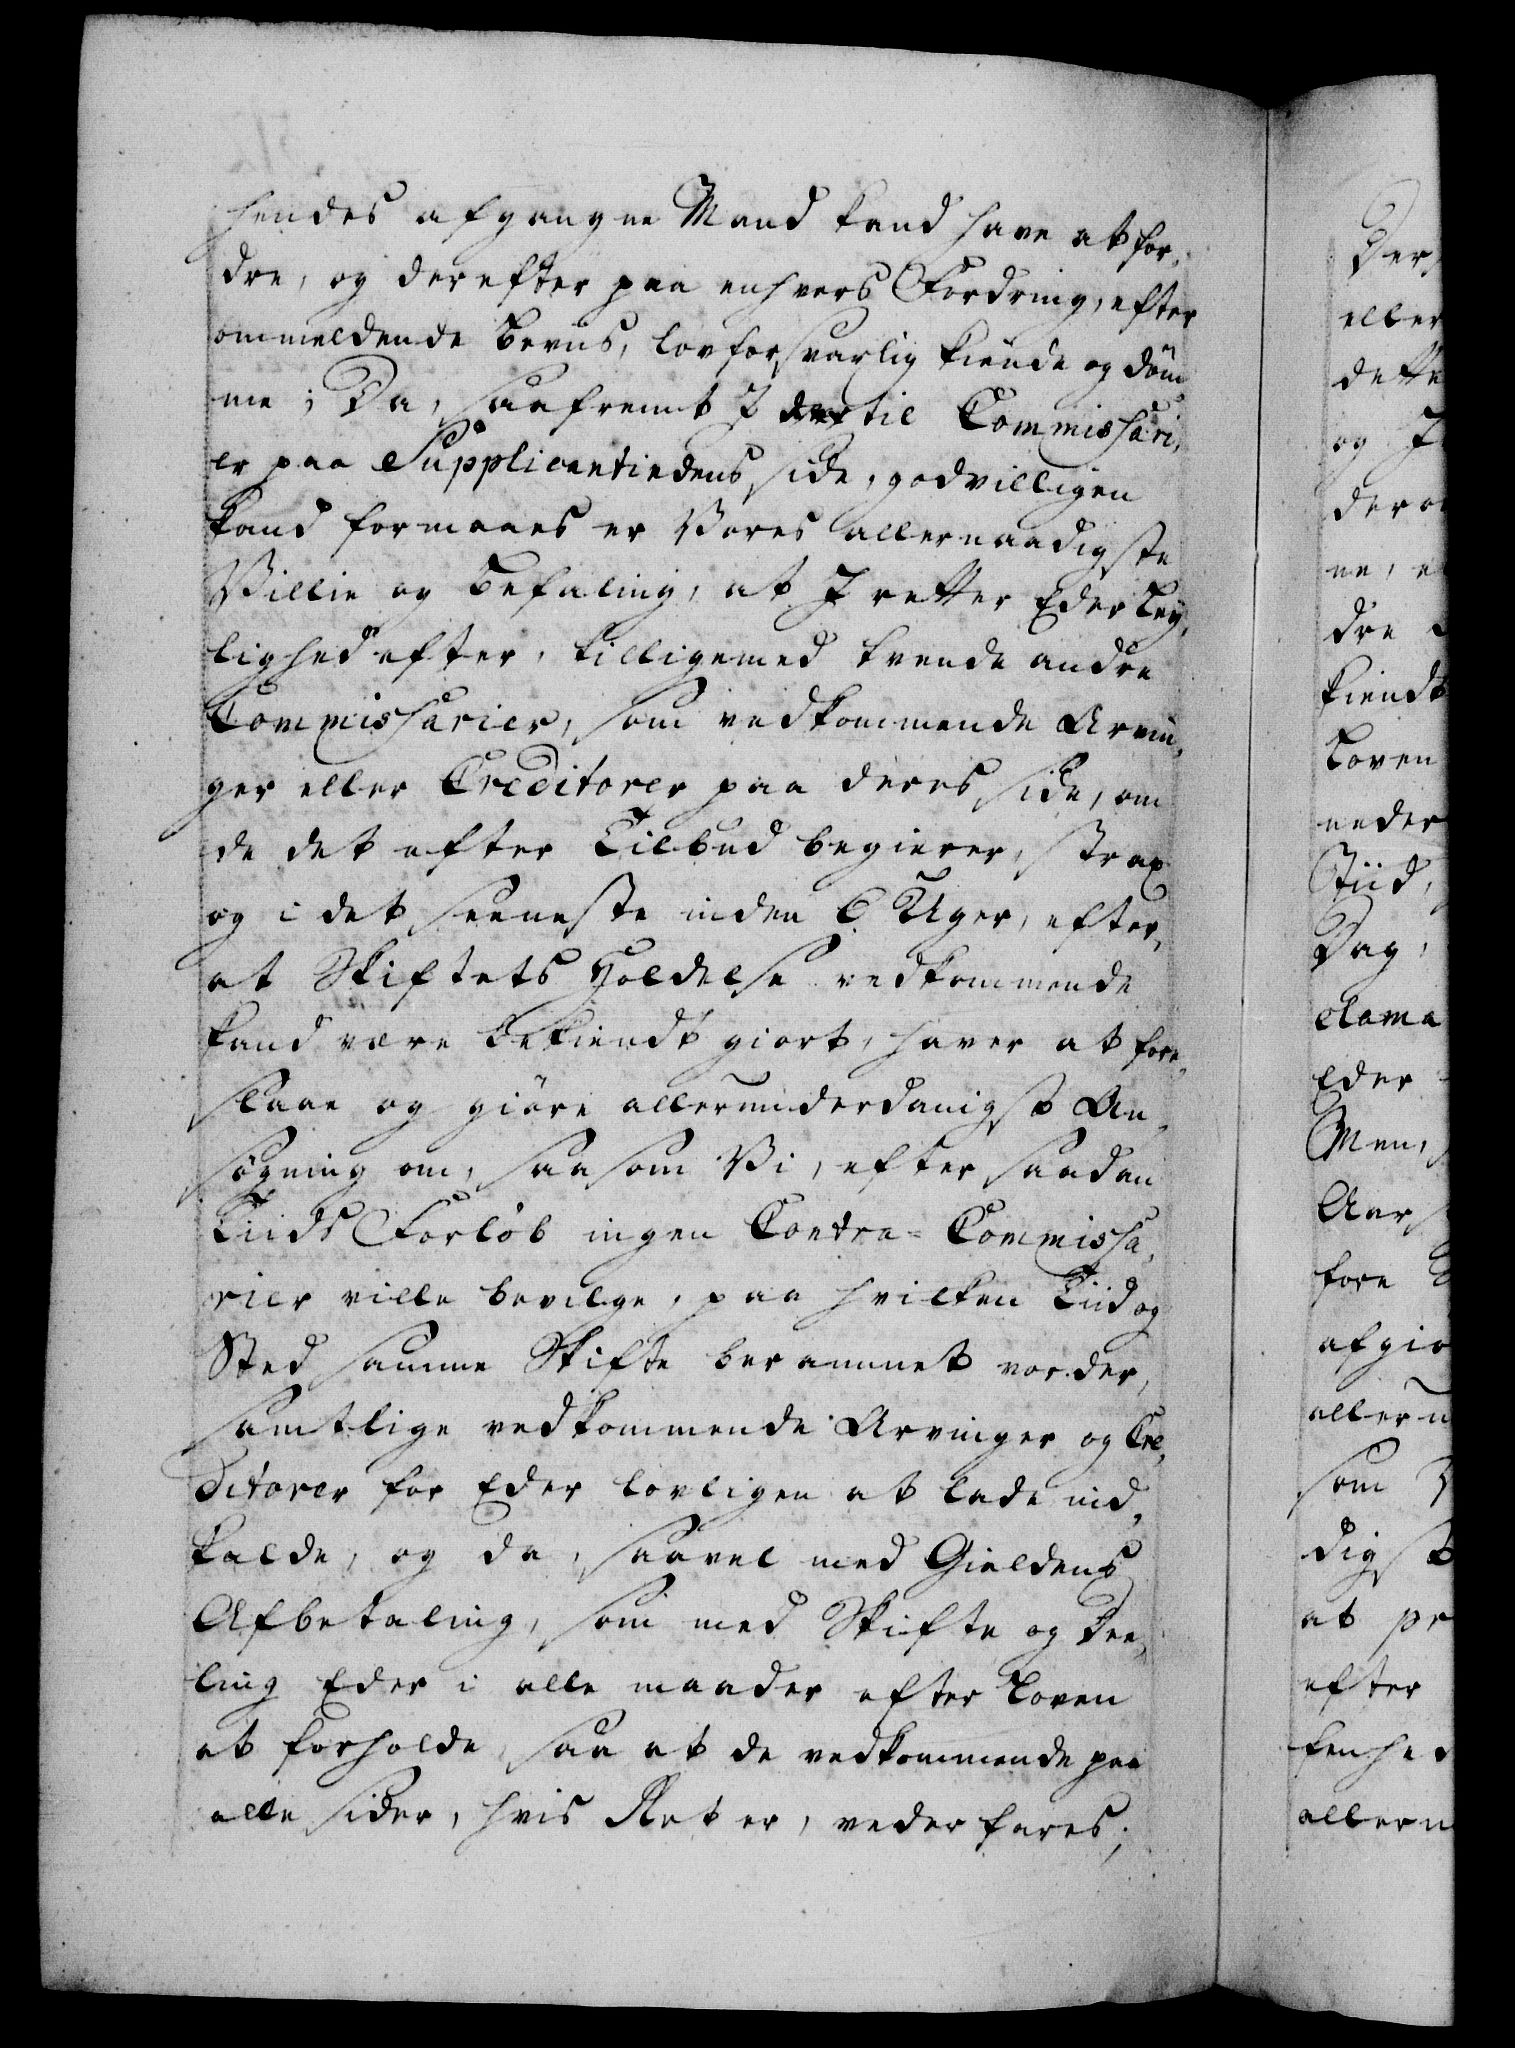 hendes afgangne Mand kand have at for,
dre, og derefter paa enhvers Fordring, efter
ommeldende Beviis, lovforsvarlig kiende og döm,
me; Da, saafremt I dertil Commissari,
er paa Supplicantindens side, godvilligen
kand formaaes er Vores allernaadigste
Villie og Befaling, at I retter Eder Ley,
lighed efter, tilligemed tvende andre
Commissarier, som vedkommende Arvin,
ger eller Creditorer paa deres side, om
de det efter Tilbud begierer, strax
og i det seeneste inden 6 Uger, efter,
at Skiftets Holdelse vedkommende
kand være bekiendt giort, haver at fore,
slaae og giöre allerunderdanigst An,
søgning om, saasom Vi, efter saadan
Tiids Forlöb ingen Contra=Commissa,
rier ville bevilge, paa hvilken Tiid og
Sted samme Skifte berammet vorder,
samtlige vedkommende Arvinger og Cre,
ditorer for Eder lovligen at lade ind,
kalde, og da, saavel med Gieldens
Afbetaling, som med Skifte og Dee,
ling Eder i alle maader efter Loven
at forholde, saa at de vedkommende paa
alle sider, hvis Ret er, vederfares;
Der
eller
dette
og I
dero
ne, e
dre
kiendt
Loven
neder
Tiid,
Dag,
clama
Eder
Men, s
Aar
fore
afgiö
alleru
som
digst
at pr
efter
kenhed
allern